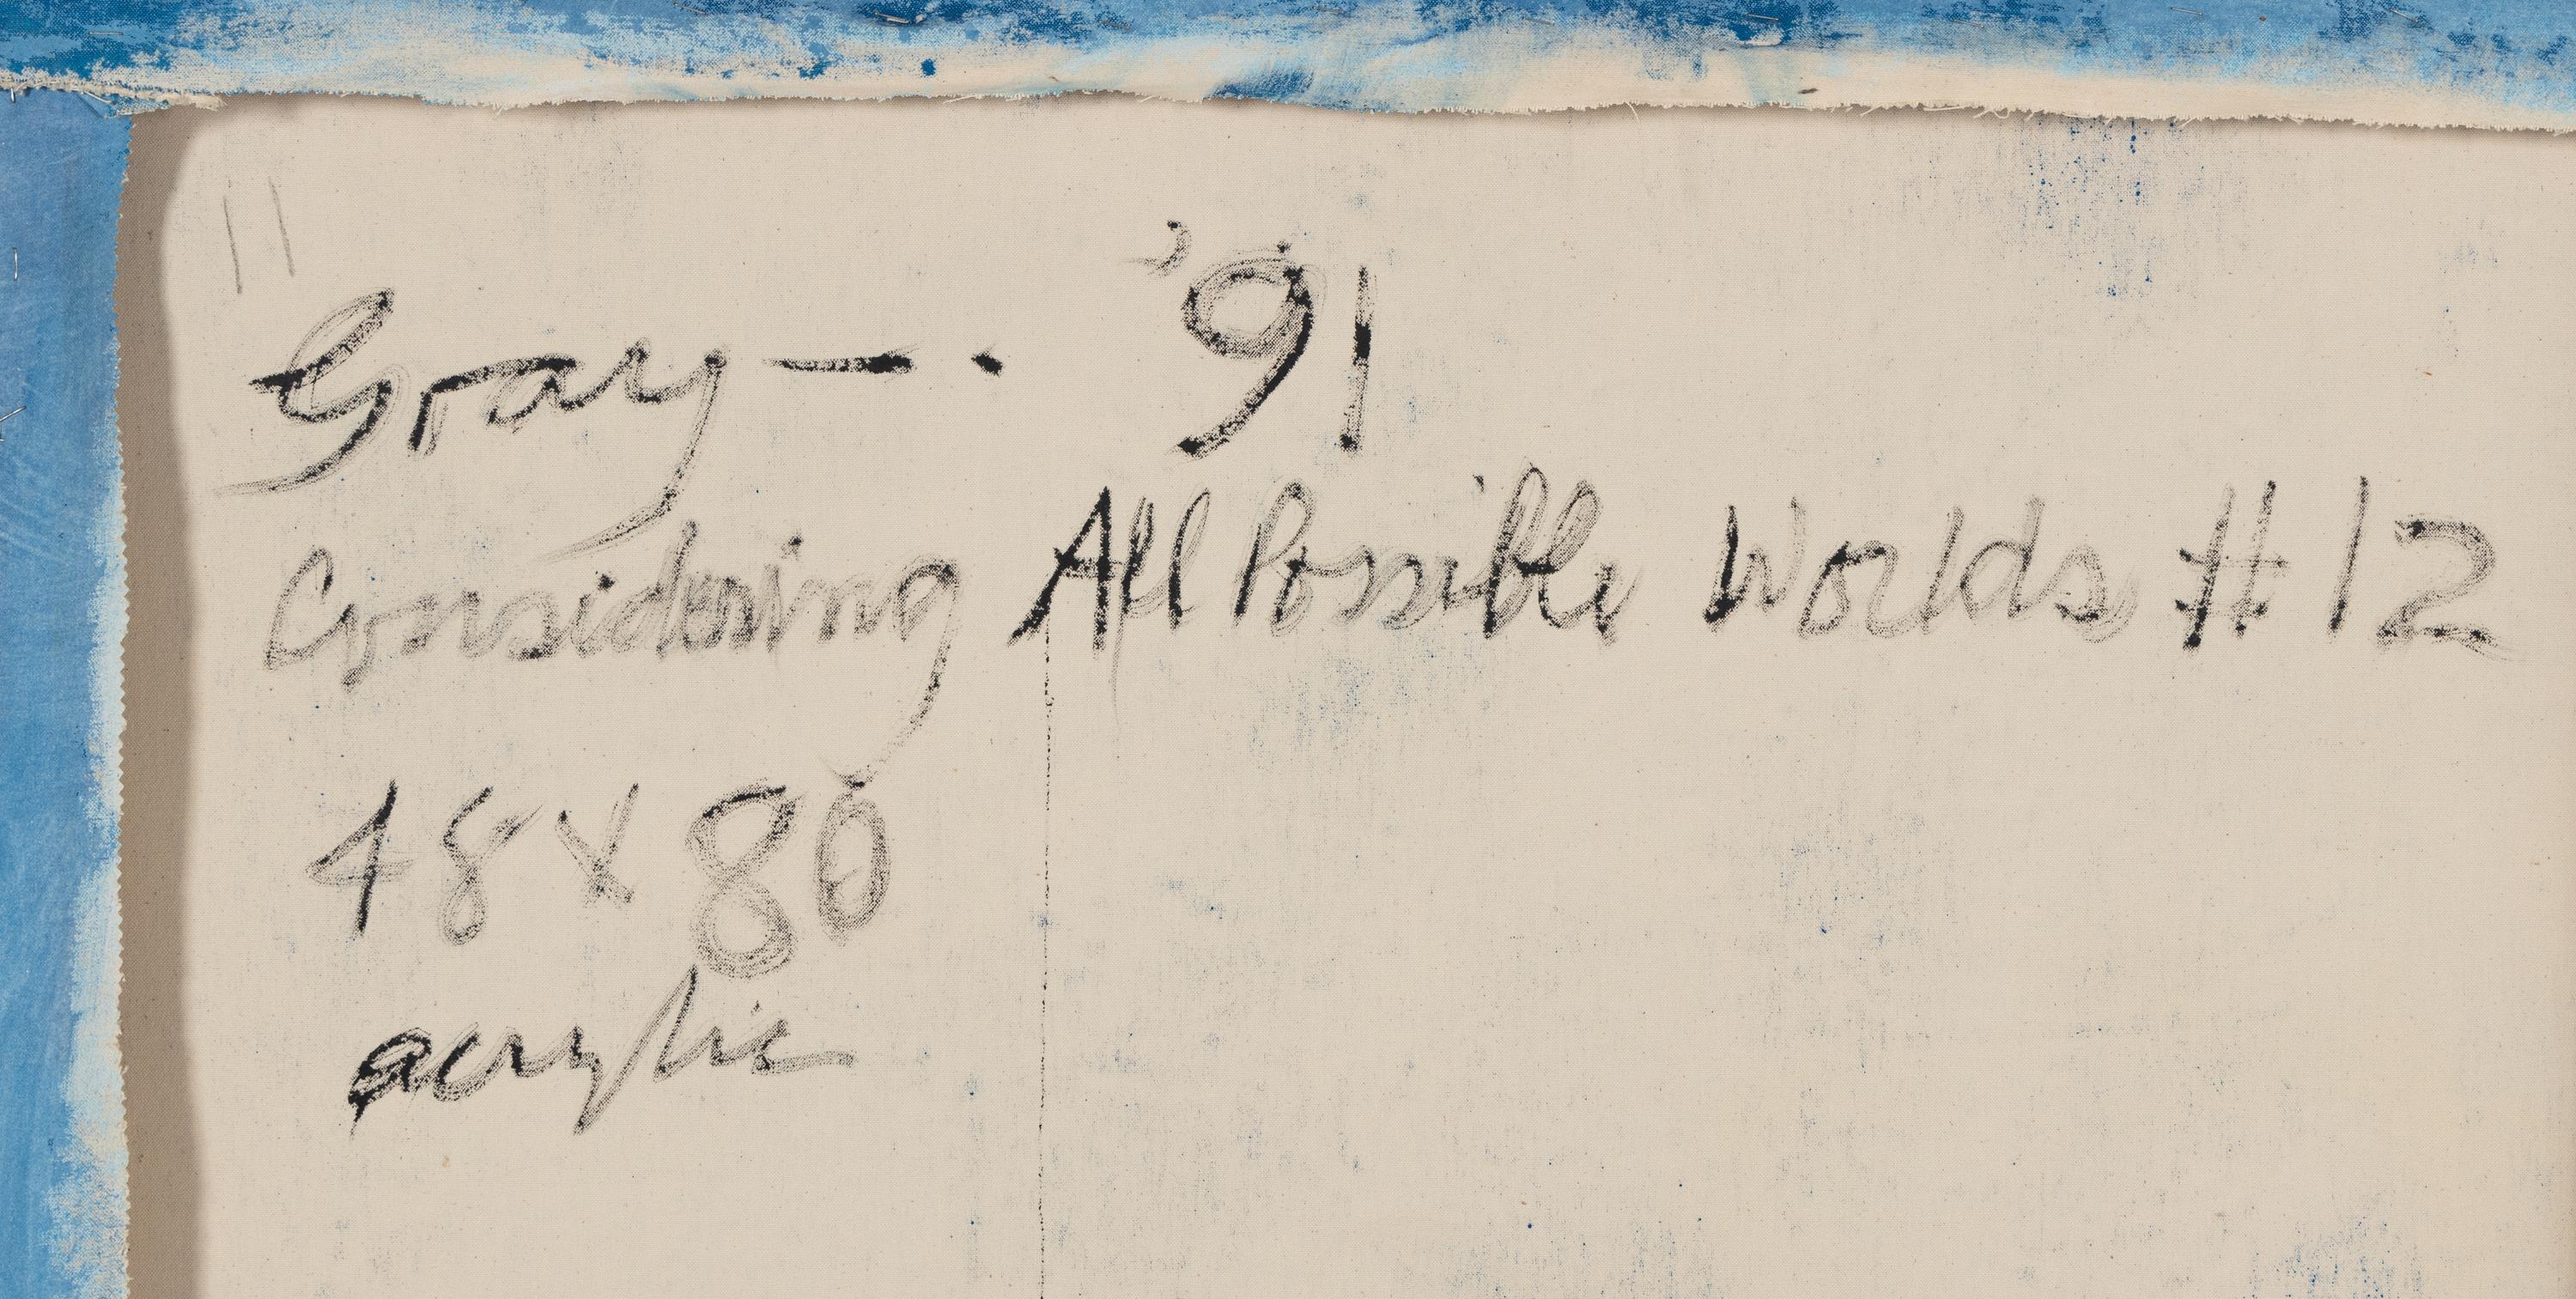 Gray—. '91
Considering All Possible Worlds #12
48 x 80
acrylic